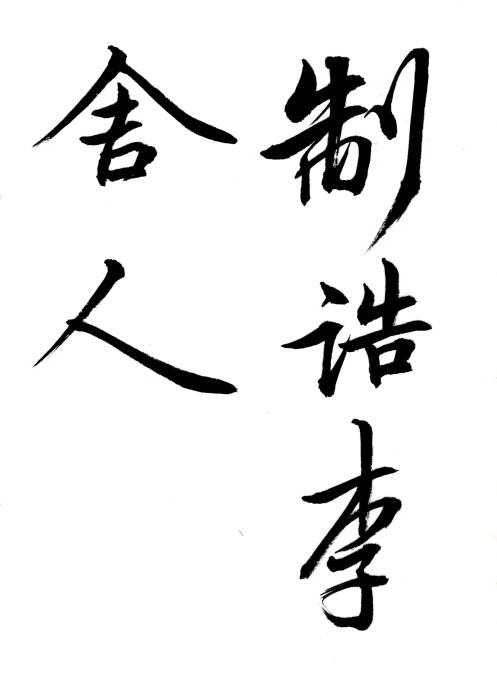 制诰李
舍人